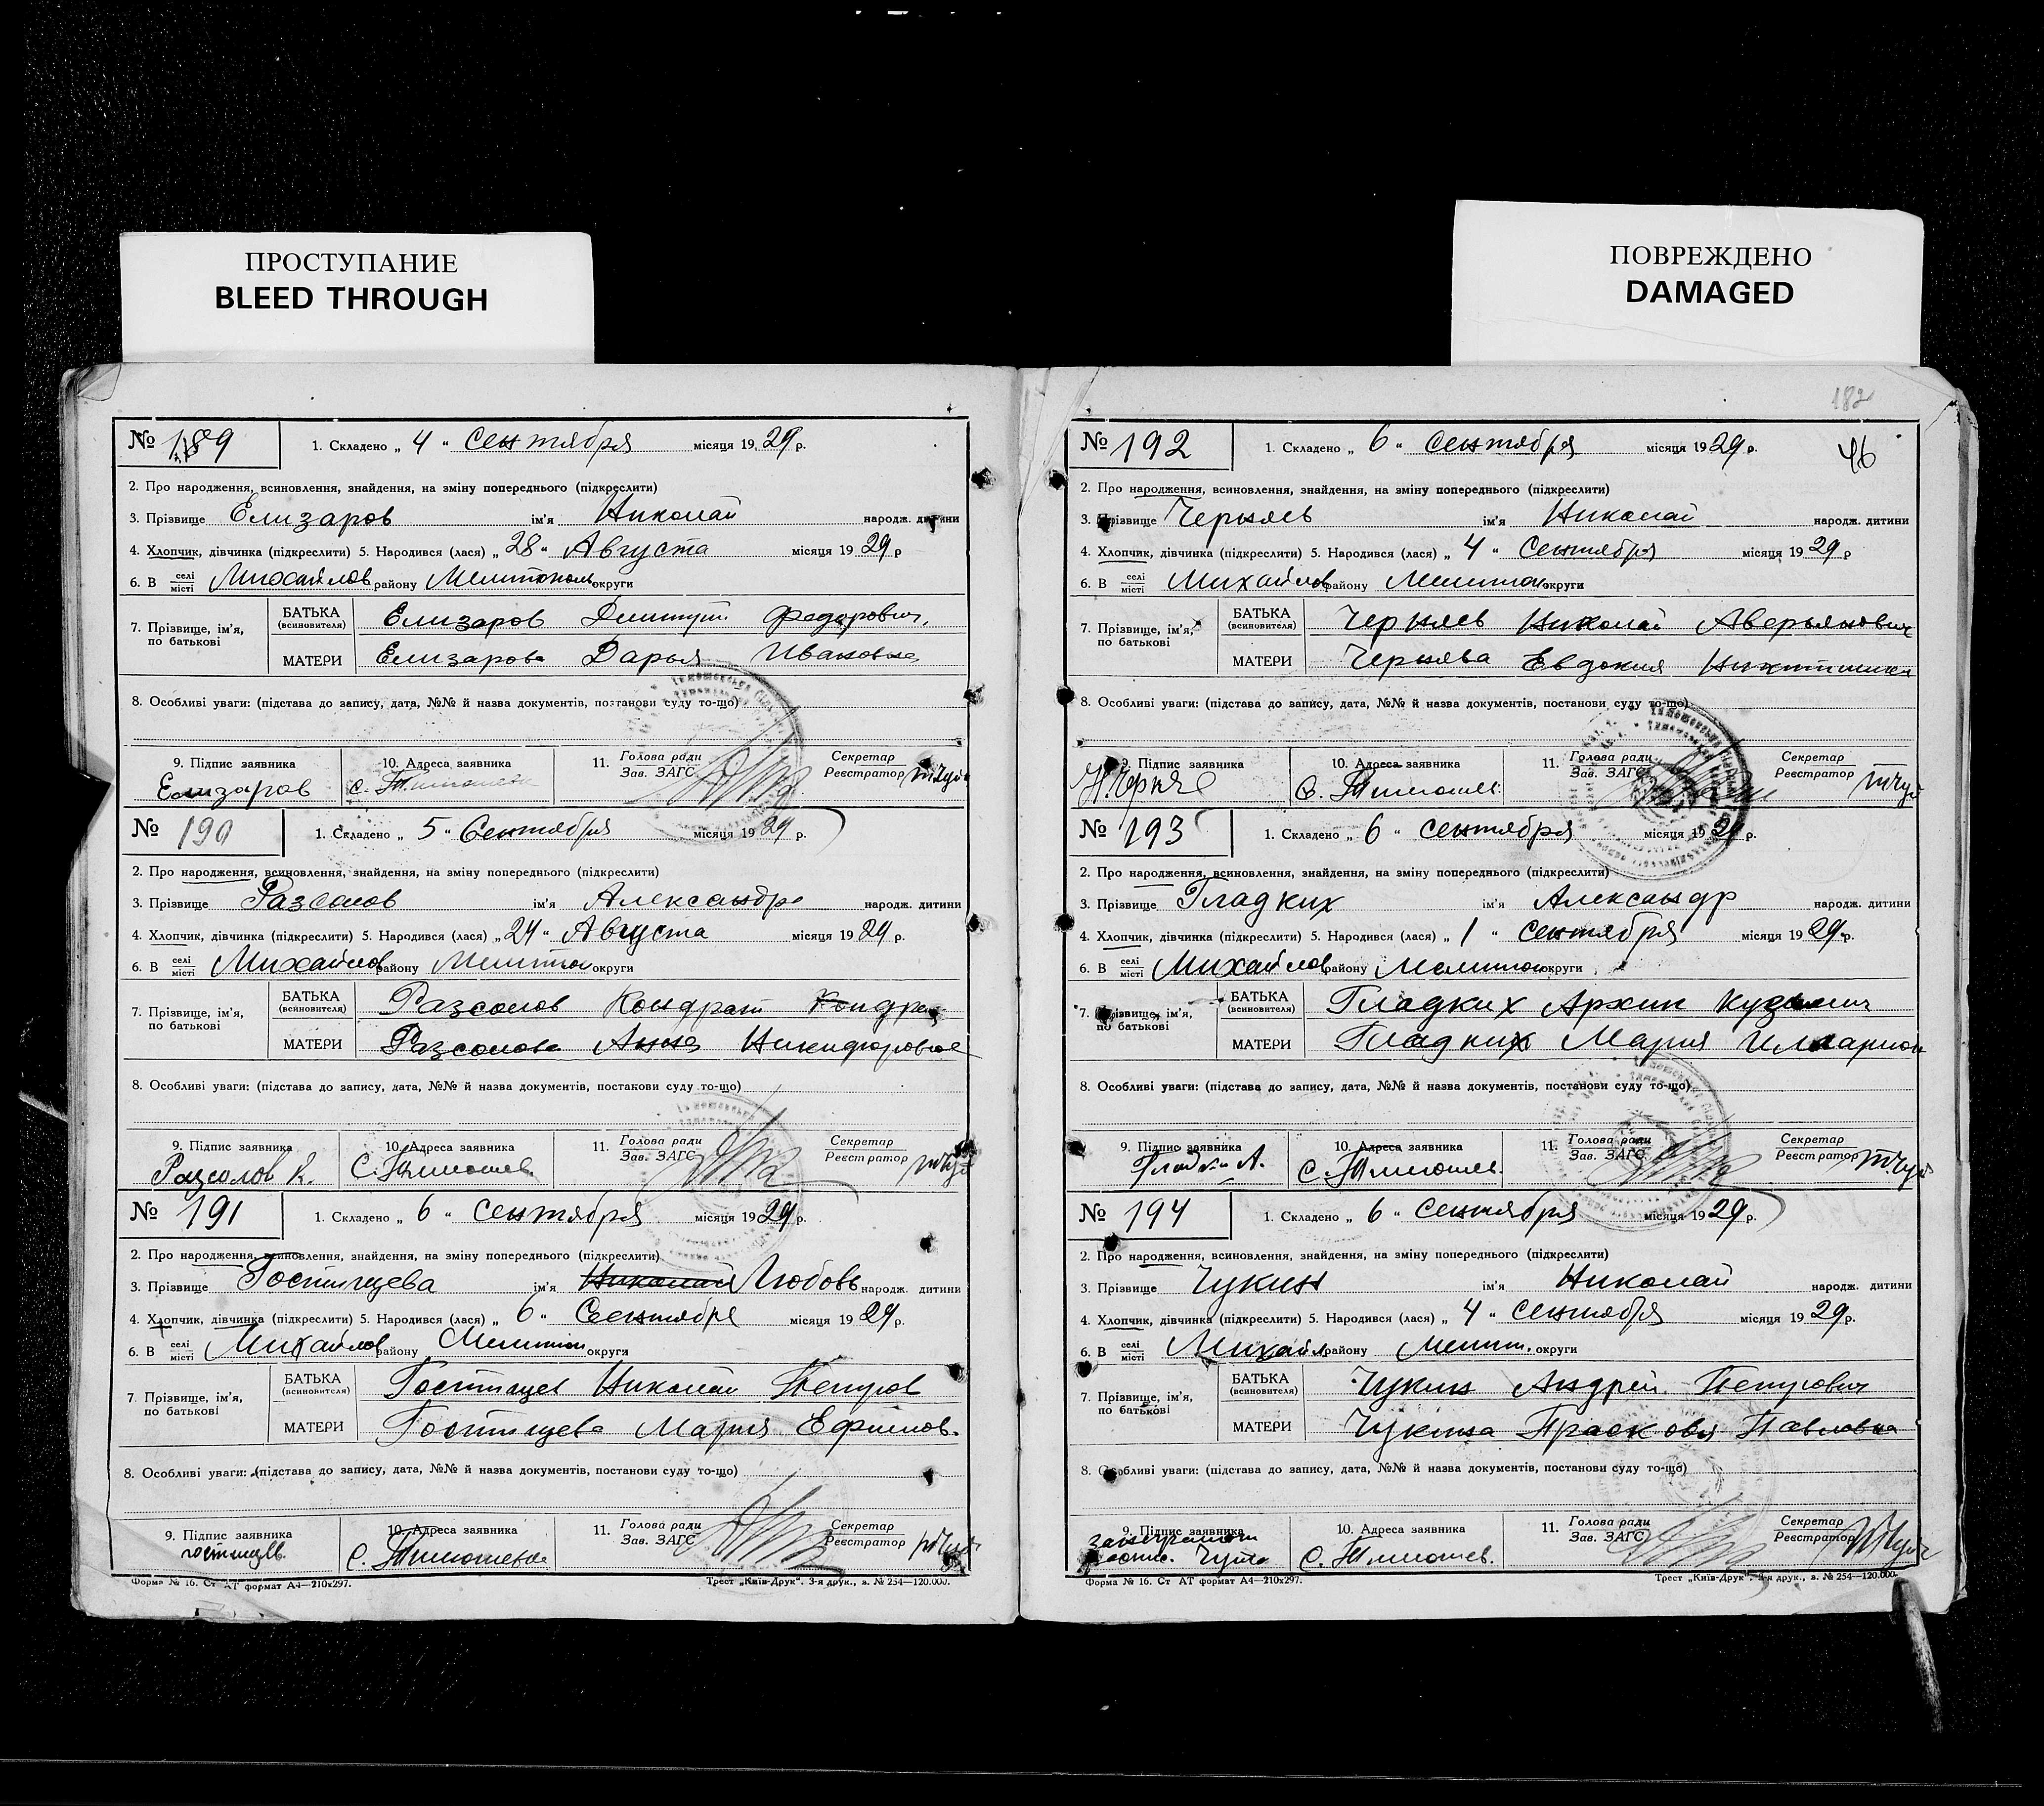 ПРОСТУПАНИЕ
BLEED THROUGH
ПОВРЕЖДЕНО
DAMAGED
№ 189 1. Складено „ 4 “ сентября місяця 1929 р.
2. Про народження, всиновлення, знайдення, на зміну попереднього (підкреслити)
3. Прізвище Елизаров ім'я Николай народж. дитини
4. Хлопчик, дівчинка (підкреслити) 5. Народився (лася) „ 28 “ Августа місяця 1929 р
6. В селі місті Михайлов району Мелитополь округи
7. Прізвище, ім'я, по батькові
БАТЬКА (всиновителя) Елизаров Дмитрий Федорович
МАТЕРИ Елизарова Дарья Ивановна
8. Особливі уваги: (підстава до запису, дата, №№ й назва документів, постанови суду то-що)
9. Підпис заявника 10. Адреса заявника 11. Голова ради Зав. ЗАГС Секретар Реєстратор
Елизаров с. Тимошевка
№ 190 1. Складено „ 5 “ Сентября місяця 1929 р.
2. Про народження, всиновлення, знайдення, на зміну попереднього (підкреслити)
3. Прізвище Разсолов ім'я Александр народж. дитини
4. Хлопчик, дівчинка (підкреслити) 5. Народився (лася) „ 24 “ Августа місяця 1929 р.
6. В селі місті Михайлов району Мелитоп округи
7. Прізвище, ім'я, по батькові
БАТЬКА (всиновителя) Разсолов Кондрат Кондра
МАТЕРИ Разсолова Анна Никифоровна
8. Особливі уваги: (підстава до запису, дата, №№ й назва документів, постанови суду то-що)
9. Підпис заявника 10. Адреса заявника 11. Голова ради Зав. ЗАГС Секретар Реєстратор
Разсолов К. С. Тимошев.
№ 191 1. Складено „ 6 “ сентября місяця 1929 р.
2. Про народження, всиновлення, знайдення, на зміну попереднього (підкреслити)
3. Прізвище Гостищева ім'я Николай Любовь народж. дитини
4. Хлопчик, дівчинка (підкреслити) 5. Народився (лася) „ 6 “ Сентября місяця 1929 р.
6. В селі місті Михайлов району Мелитоп округи
7. Прізвище, ім'я, по батькові
БАТЬКА (всиновителя) Гостищев Николай Петров
МАТЕРИ Гостищева Мария Ефимов.
8. Особливі уваги: (підстава до запису, дата, №№ й назва документів, постанови суду то-що)
9. Підпис заявника 10. Адреса заявника 11. Голова ради Зав. ЗАГС Секретар Реєстратор
гостищев с. Тимошевка
Форма № 16. Ст АТ формат А4—210x297. Трест „Київ-Друк“. 3-я друк., з. № 254—120.000.
182
46
№ 192 1. Складено „ 6 “ сентября місяця 1929 р.
2. Про народження, всиновлення, знайдення, на зміну попереднього (підкреслити)
3. Прізвище Черняев ім'я Николай народж. дитини
4. Хлопчик, дівчинка (підкреслити) 5. Народився (лася) „ 4 “ сентября місяця 1929 р
6. В селі місті Михайлов району Мелитоп. округи
7. Прізвище, ім'я, по батькові
БАТЬКА (всиновителя) Черняев Николай Аверьянович
МАТЕРИ Черняева Евдокия
8. Особливі уваги: (підстава до запису, дата, №№ й назва документів, постанови суду то-що)
9. Підпис заявника 10. Адреса заявника 11. Голова ради Зав. ЗАГС Секретар Реєстратор
Н. Черняе с. Тимошев.
№ 193 1. Складено „ 6 “ сентября місяця 1929 р.
2. Про народження, всиновлення, знайдення, на зміну попереднього (підкреслити)
3. Прізвище Гладких ім'я Александр народж. дитини
4. Хлопчик, дівчинка (підкреслити) 5. Народився (лася) „ 1 “ сентября місяця 1929 р.
6. В селі місті Михайлов району Мелитоп округи
7. Прізвище, ім'я, по батькові
БАТЬКА (всиновителя) Гладких Архип Кузьмич
МАТЕРИ Гладких Мария Илларион
8. Особливі уваги: (підстава до запису, дата, №№ й назва документів, постанови суду то-що)
9. Підпис заявника 10. Адреса заявника 11. Голова ради Зав. ЗАГС Секретар Реєстратор
Гладких А. С. Тимошев.
№ 194 1. Складено „ 6 “ сентября місяця 1929 р.
2. Про народження, всиновлення, знайдення, на зміну попереднього (підкреслити)
3. Прізвище Чукин ім'я Николай народж. дитини
4. Хлопчик, дівчинка (підкреслити) 5. Народився (лася) „ 4 “ сентября місяця 1929 р.
6. В селі місті Михайл. району Мелит. округи
7. Прізвище, ім'я, по батькові
БАТЬКА (всиновителя) Чукин Андрей Петрович
МАТЕРИ Чукина Прасковья Павловна
8. Особливі уваги: (підстава до запису, дата, №№ й назва документів, постанови суду то-що)
9. Підпис заявника 10. Адреса заявника 11. Голова ради Зав. ЗАГС Секретар Реєстратор
с. Тимошев.
Форма № 16. Ст АТ формат А4—210x297. Трест „Київ-Друк“. 3-я друк., з. № 254—120.000.